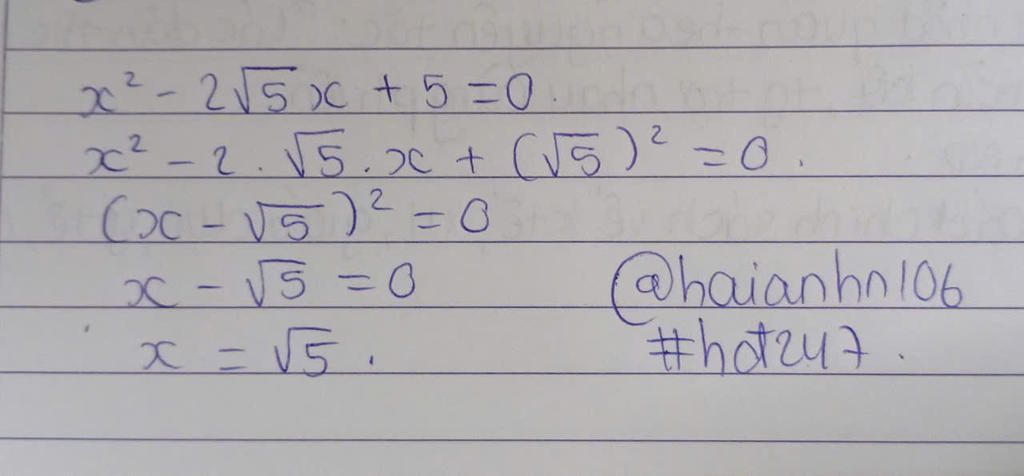 x² - 2√5x + 5 = 0.
x² - 2 . √5 . x + (√5)² = 0.
(x - √5)² = 0
x - √5 = 0
x = √5.
@haianhn106
#hot247.